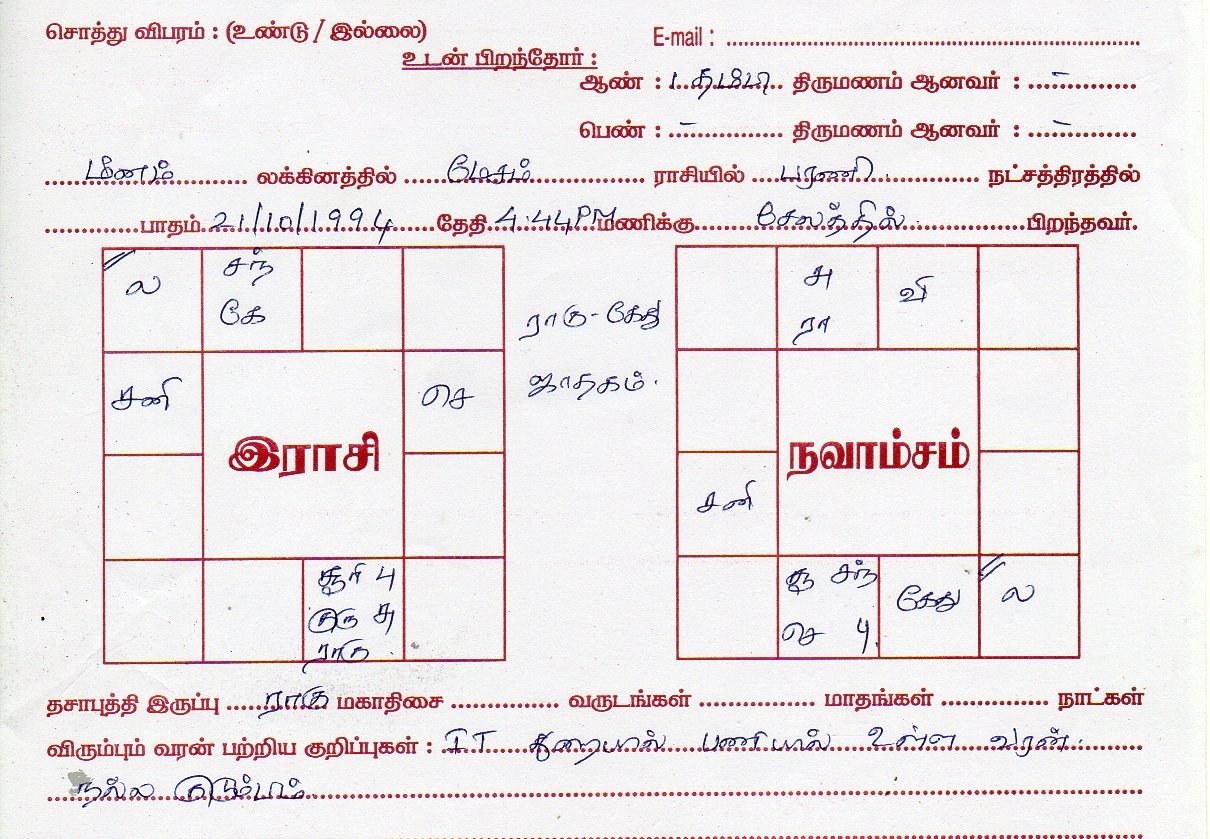 சொத்து விபரம் : (உண்டு / இல்லை)
E-mail : ........................................
உடன் பிறந்தோர் :
ஆண் : 1 தம்பி திருமணம் ஆனவர் : –
பெண் : – திருமணம் ஆனவர் : –
மீனம் லக்கினத்தில் மேசம் ராசியில் பரணி நட்சத்திரத்தில்
பாதம் 21/10/1994 தேதி 4.44PM மணிக்கு சேலத்தில் பிறந்தவர்.
ல சந்
கே
சனி செ
இராசி
சூரி பு
குரு சு
ராகு
ராகு-கேது
ஜாதகம்.
சு வி
ரா
நவாம்சம்
சனி
சூ சந் கேது ல
செ பு
தசாபுத்தி இருப்பு ராகு மகாதிசை வருடங்கள் மாதங்கள் நாட்கள்
விரும்பும் வரன் பற்றிய குறிப்புகள் : IT துறையில் பணியில் உள்ள வரன்.
நல்ல குடும்பம்